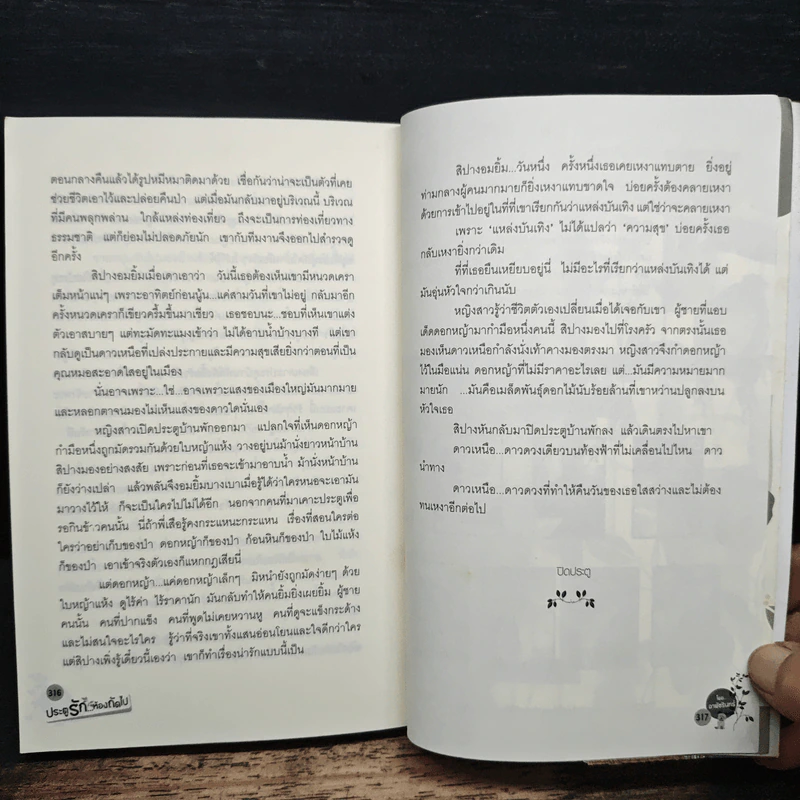 ตอนกลางคืนแล้วได้รูปหมีหมาติดมาด้วย เชื่อกันว่าน่าจะเป็นตัวที่เคย
ช่วยชีวิตเอาไว้และปล่อยคืนป่า แต่เมื่อมันกลับมาอยู่บริเวณนี้ บริเวณ
ที่มีคนพลุกพล่าน ใกล้แหล่งท่องเที่ยว ถึงจะเป็นการท่องเที่ยวทาง
ธรรมชาติ แต่ก็ย่อมไม่ปลอดภัยนัก เขากับทีมงานจึงออกไปสำรวจดู
อีกครั้ง
สิปางอมยิ้มเมื่อเดาเอาว่า วันนี้เธอต้องเห็นเขามีหนวดเครา
เต็มหน้าแน่ๆ เพราะอาทิตย์ก่อนนู้น...แค่สามวันที่เขาไม่อยู่ กลับมาอีก
ครั้งหนวดเคราก็เขียวครึ้มขึ้นมาเชียว เธอชอบนะ...ชอบที่เห็นเขาแต่ง
ตัวเอาสบายๆ แต่ทะมัดทะแมงเข้าว่า ไม่ได้อาบน้ำบ้างบางที แต่เขา
กลับดูเป็นดาวเหนือที่เปล่งประกายและมีความสุขเสียยิ่งกว่าตอนที่เป็น
คุณหมอสะอาดใสอยู่ในเมือง
นั่นอาจเพราะ...ใช่...อาจเพราะแสงของเมืองใหญ่มันมากมาย
และหลอกตาจนมองไม่เห็นแสงของดาวใดนั่นเอง
หญิงสาวเปิดประตูบ้านพักออกมา แปลกใจที่เห็นดอกหญ้า
กำมือหนึ่งถูกมัดรวมกันด้วยใบหญ้าแห้ง วางอยู่บนม้านั่งยาวหน้าบ้าน
สิปางมองอย่างสงสัย เพราะก่อนที่เธอจะเข้ามาอาบน้ำ ม้านั่งหน้าบ้าน
ก็ยังว่างเปล่า แล้วพลันจึงอมยิ้มบางเบาเมื่อรู้ได้ว่าใครหนอจะเอามัน
มาวางไว้ให้ ก็จะเป็นใครไปไม่ได้อีก นอกจากคนที่มาเคาะประตูเพื่อ
รอกินข้าวคนนั้น นี่ถ้าพี่เสือรู้คงกระแหนะกระแหน เรื่องที่สอนใครต่อ
ใครว่าอย่าเก็บของป่า ดอกหญ้าก็ของป่า ก้อนหินก็ของป่า ใบไม้แห้ง
ก็ของป่า เอาเข้าจริงตัวเองก็แหกกฎเสียนี่
แต่ดอกหญ้า...แค่ดอกหญ้าเล็กๆ มิหนำยังถูกมัดง่ายๆ ด้วย
ใบหญ้าแห้ง ดูไร้ค่า ไร้ราคานัก มันกลับทำให้คนยิ้มยิ่งเผยยิ้ม ผู้ชาย
คนนั้น คนที่ปากแข็ง คนที่พูดไม่เคยหวานหู คนที่ดูจะแข็งกระด้าง
และไม่สนใจอะไรใคร รู้ว่าที่จริงเขาทั้งแสนอ่อนโยนและใจดีกว่าใคร
แต่สิปางเพิ่งรู้เดี๋ยวนี้เองว่า เขาก็ทำเรื่องน่ารักแบบนี้เป็น
316
ประตูรักห้องถัดไป
สิปางอมยิ้ม...วันหนึ่ง ครั้งหนึ่งเธอเคยเหงาแทบตาย ยิ่งอยู่
ท่ามกลางผู้คนมากมายก็ยิ่งเหงาแทบขาดใจ บ่อยครั้งต้องคลายเหงา
ด้วยการเข้าไปอยู่ในที่ที่เขาเรียกกันว่าแหล่งบันเทิง แต่ใช่ว่าจะคลายเหงา
เพราะ ‘แหล่งบันเทิง’ ไม่ได้แปลว่า ‘ความสุข’ บ่อยครั้งเธอ
กลับเหงายิ่งกว่าเดิม
ที่ที่เธอยืนเหยียบอยู่นี้ ไม่มีอะไรที่เรียกว่าแหล่งบันเทิงได้ แต่
มันอุ่นหัวใจกว่าเกินนับ
หญิงสาวรู้ว่าชีวิตตัวเองเปลี่ยนเมื่อได้เจอกับเขา ผู้ชายที่แอบ
เด็ดดอกหญ้ามากำมือหนึ่งคนนี้ สิปางมองไปที่โรงครัว จากตรงนั้นเธอ
มองเห็นดาวเหนือกำลังนั่งเท้าคางมองตรงมา หญิงสาวจึงกำดอกหญ้า
ไว้ในมือแน่น ดอกหญ้าที่ไม่มีราคาอะไรเลย แต่...มันมีความหมายมาก
มายนัก ...มันคือเมล็ดพันธุ์ดอกไม้นับร้อยล้านที่เขาหว่านปลูกลงบน
หัวใจเธอ
สิปางหันกลับมาปิดประตูบ้านพักลง แล้วเดินตรงไปหาเขา
ดาวเหนือ...ดาวดวงเดียวบนท้องฟ้าที่ไม่เคลื่อนไปไหน ดาว
นำทาง
ดาวเหนือ...ดาวดวงที่ทำให้คืนวันของเธอใสสว่างและไม่ต้อง
ทนเหงาอีกต่อไป
ปิดประตู
โดย
317